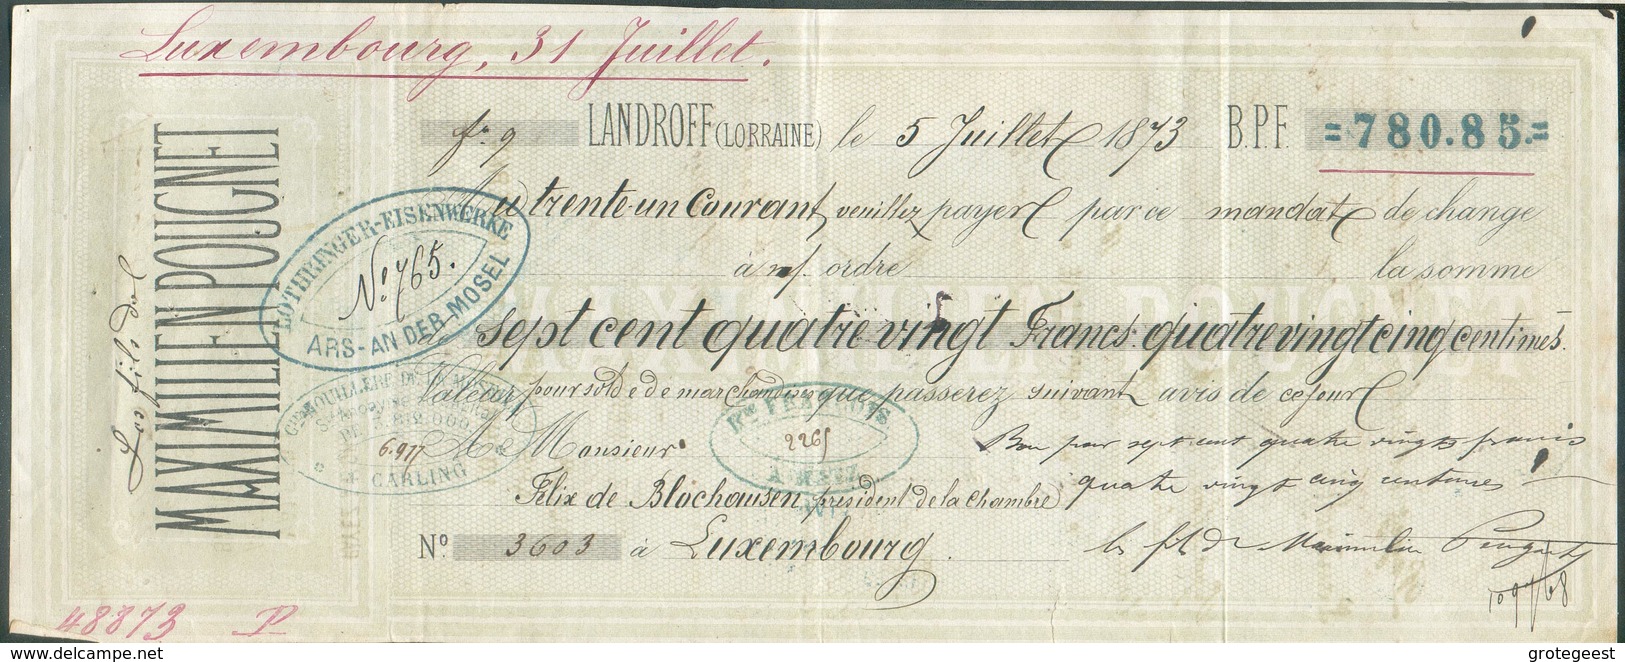 Luxembourg, 31 Juillet.
fo. 9 LANDROFF (LORRAINE) le 5 Juillet 1873 B.P.F. =780.85.=
Au trente-un Courant, veuillez payer par ce mandat de change
à n/. ordre la somme
sept cent quatre vingt Francs quatre vingt cinq centimes.
Valeur pour solde de marchandises que passerez suivant avis de ce jour
A Monsieur
Félix de Blochausen, président de la Chambre
No. 3603 à Luxembourg.
Bon pour sept cent quatre vingts francs
quatre vingt cinq centimes
les fils de Maximilien Pougnet
Les fils de
MAXIMILIEN POUGNET
LOTHRINGER-EISENWERKE
No. 765.
ARS-AN DER-MOSEL
HOUILLERE DE LA MOSELLE
6.977
CARLING
2265
A METZ
48873 P
delcampe.net
grotegeest